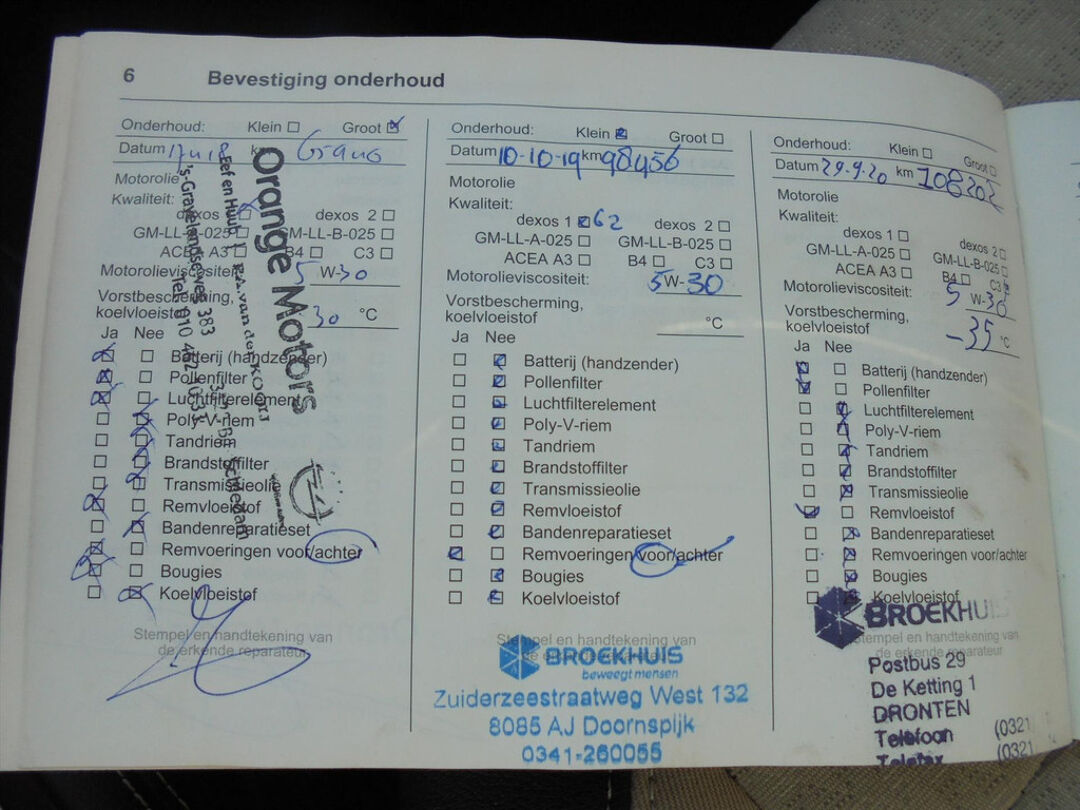 6 Bevestiging onderhoud
Onderhoud: Klein Groot
Datum km
Motorolie
Kwaliteit:
dexos 1 dexos 2
GM-LL-A-025 GM-LL-B-025
ACEA A3 B4 C3
Motorolieviscositeit: 5 W-30
Vorstbescherming,
koelvloeistof 30 °C
Ja Nee
Batterij (handzender)
Pollenfilter
Luchtfilterelement
Poly-V-riem
Tandriem
Brandstoffilter
Transmissieolie
Remvloeistof
Bandenreparatieset
Remvoeringen voor/achter
Bougies
Koelvloeistof
Stempel en handtekening van
de erkende reparateur
Orange Motors
's-Gravelandseweg 383
Onderhoud: Klein Groot
Datum 10-10-19 km 98456
Motorolie
Kwaliteit:
dexos 1 62 dexos 2
GM-LL-A-025 GM-LL-B-025
ACEA A3 B4 C3
Motorolieviscositeit: 5W-30
Vorstbescherming,
koelvloeistof °C
Ja Nee
Batterij (handzender)
Pollenfilter
Luchtfilterelement
Poly-V-riem
Tandriem
Brandstoffilter
Transmissieolie
Remvloeistof
Bandenreparatieset
Remvoeringen voor/achter
Bougies
Koelvloeistof
Stempel en handtekening van
BROEKHUIS
beweegt mensen
Zuiderzeestraatweg West 132
8085 AJ Doornspijk
0341-260055
Onderhoud: Klein Groot
Datum 29-9-20 km 108202
Motorolie
Kwaliteit:
dexos 1 dexos 2
GM-LL-A-025 GM-LL-B-025
ACEA A3 B4 C3
Motorolieviscositeit: 5 W-30
Vorstbescherming,
koelvloeistof -35 °C
Ja Nee
Batterij (handzender)
Pollenfilter
Luchtfilterelement
Poly-V-riem
Tandriem
Brandstoffilter
Transmissieolie
Remvloeistof
Bandenreparatieset
Remvoeringen voor/achter
Bougies
Koelvloeistof
BROEKHUIS
Stempel en handtekening van
de erkende reparateur
Postbus 29
De Ketting 1
DRONTEN
Telefoon (0321
Telefax (0321